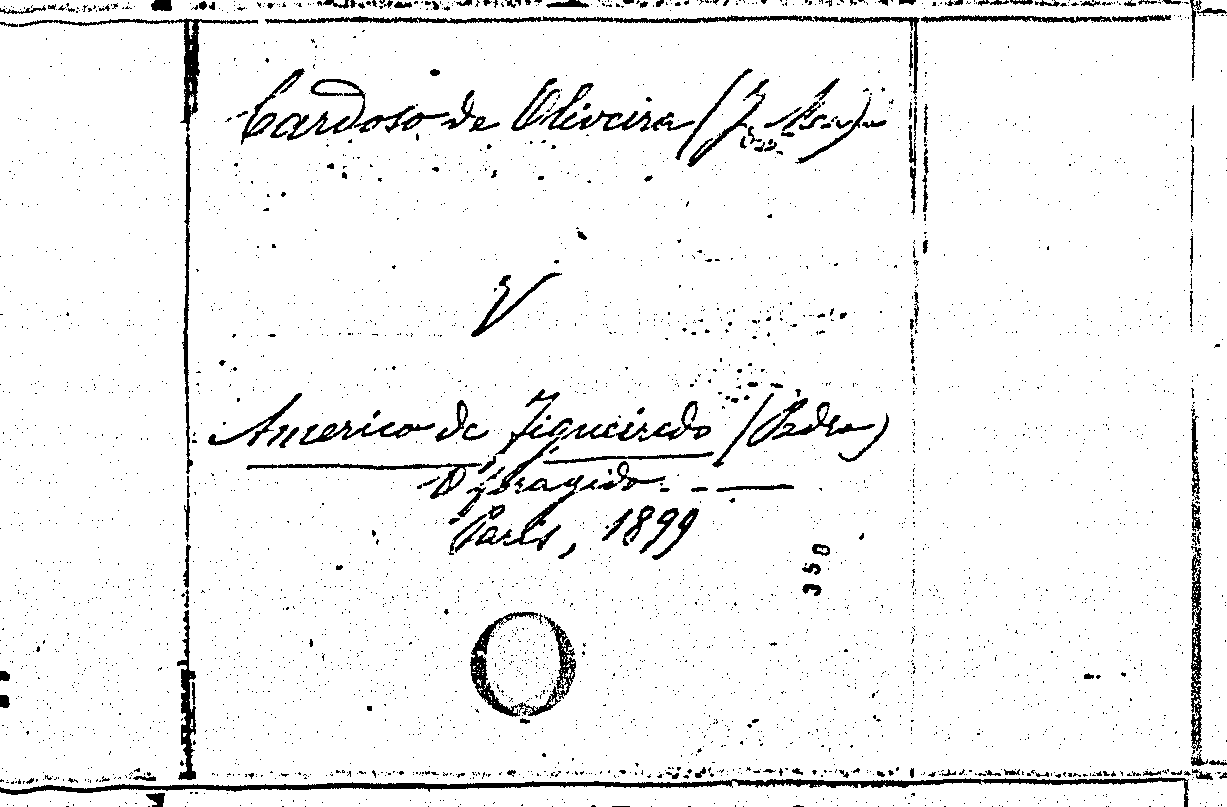 Cardoso de Oliveira (J.
V
Americo de Figueiredo (Pedro)
O foragido.
Paris, 1899
350